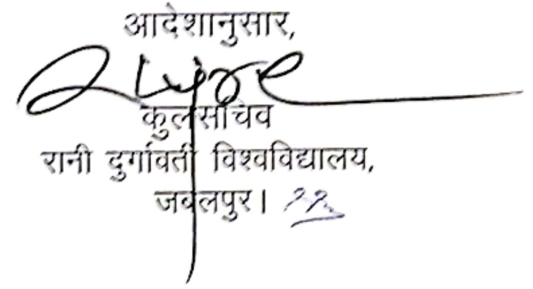 आदेशानुसार,
कुलसचिव
रानी दुर्गावती विश्वविद्यालय,
जबलपुर।